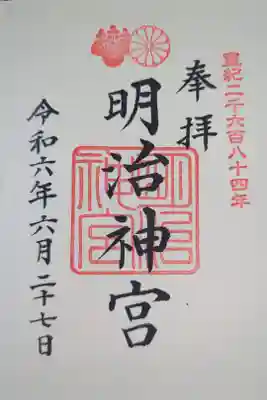 皇紀二千六百八十四年
奉拝
明治神宮
明治神宮
令和六年六月二十七日